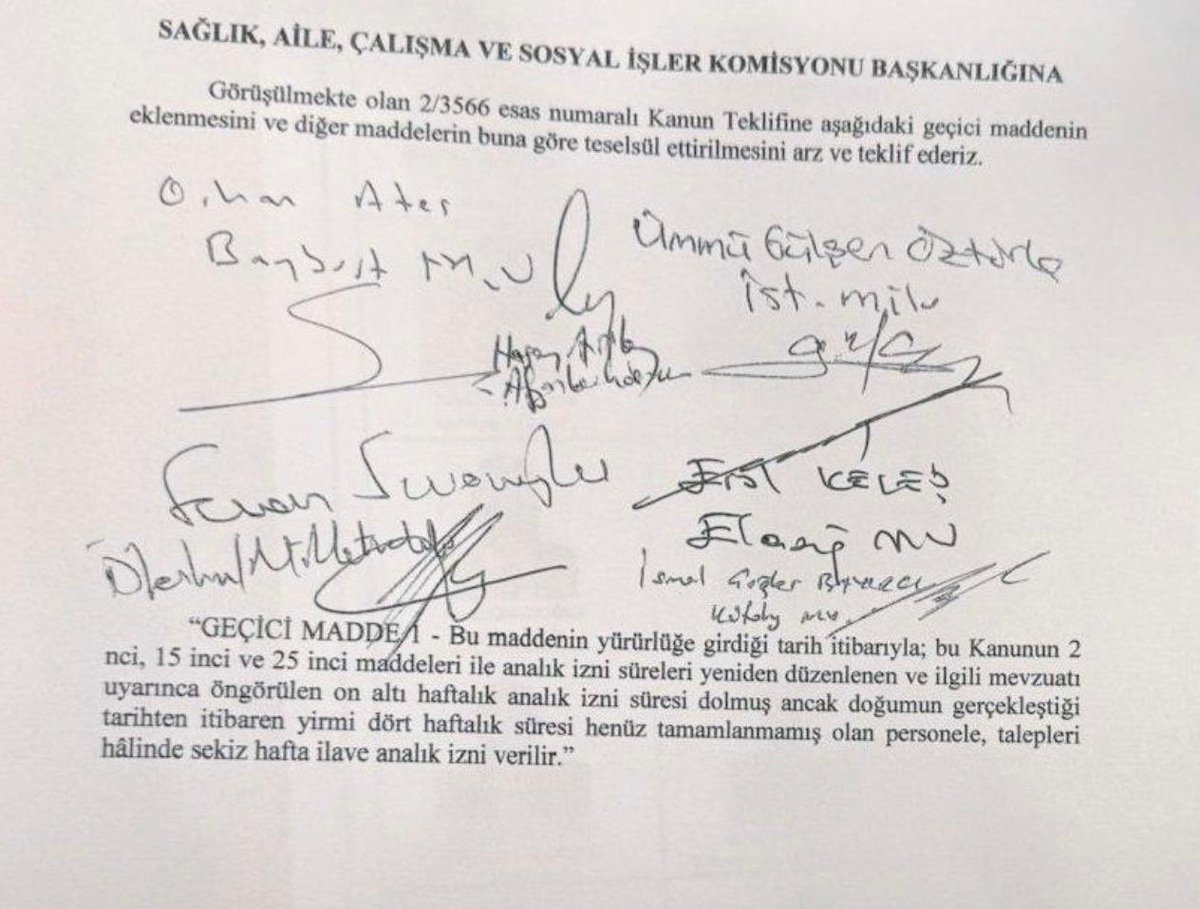 SAĞLIK, AİLE, ÇALIŞMA VE SOSYAL İŞLER KOMİSYONU BAŞKANLIĞINA
Görüşülmekte olan 2/3566 esas numaralı Kanun Teklifine aşağıdaki geçici maddenin
eklenmesini ve diğer maddelerin buna göre teselsül ettirilmesini arz ve teklif ederiz.
Orhan Ateş
Ümmü Gülşen Öztürk
Bayburt M.V
İst. milv
Erol KELEŞ
Elazığ MV
İsmail
Kütahy mv.
“GEÇİCİ MADDE 1 - Bu maddenin yürürlüğe girdiği tarih itibarıyla; bu Kanunun 2
nci, 15 inci ve 25 inci maddeleri ile analık izni süreleri yeniden düzenlenen ve ilgili mevzuatı
uyarınca öngörülen on altı haftalık analık izni süresi dolmuş ancak doğumun gerçekleştiği
tarihten itibaren yirmi dört haftalık süresi henüz tamamlanmamış olan personele, talepleri
hâlinde sekiz hafta ilave analık izni verilir.”